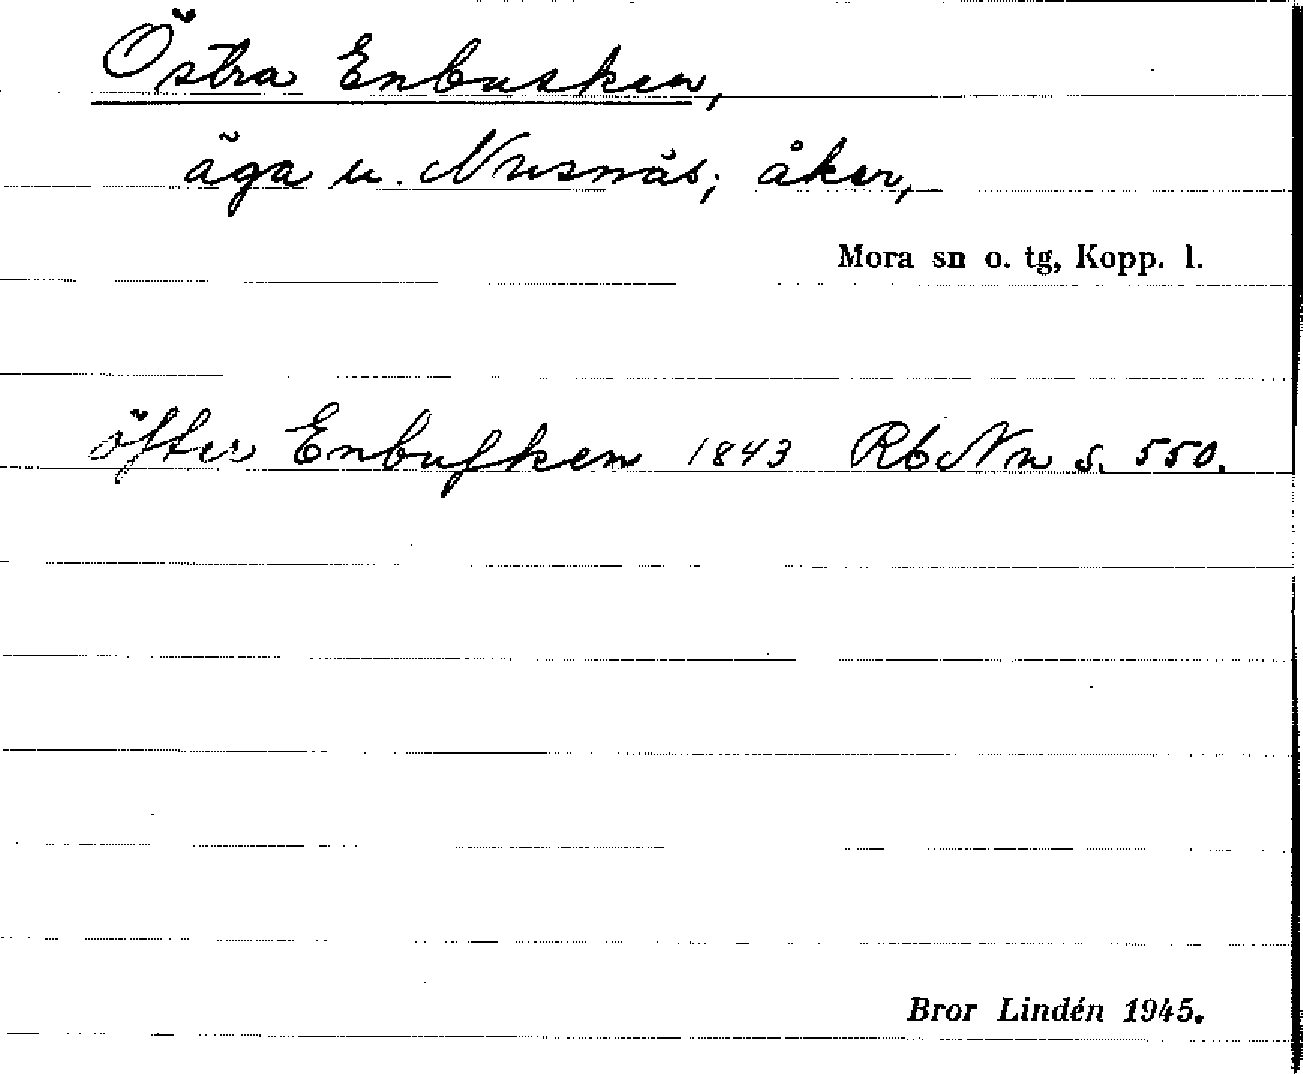 Östra Enbusken,
äga u. Nusnäs; åker,
Mora sn o. tg, Kopp. l.
öfter Enbuſken 1843 RbNn s. 550.
Bror Lindén 1945.